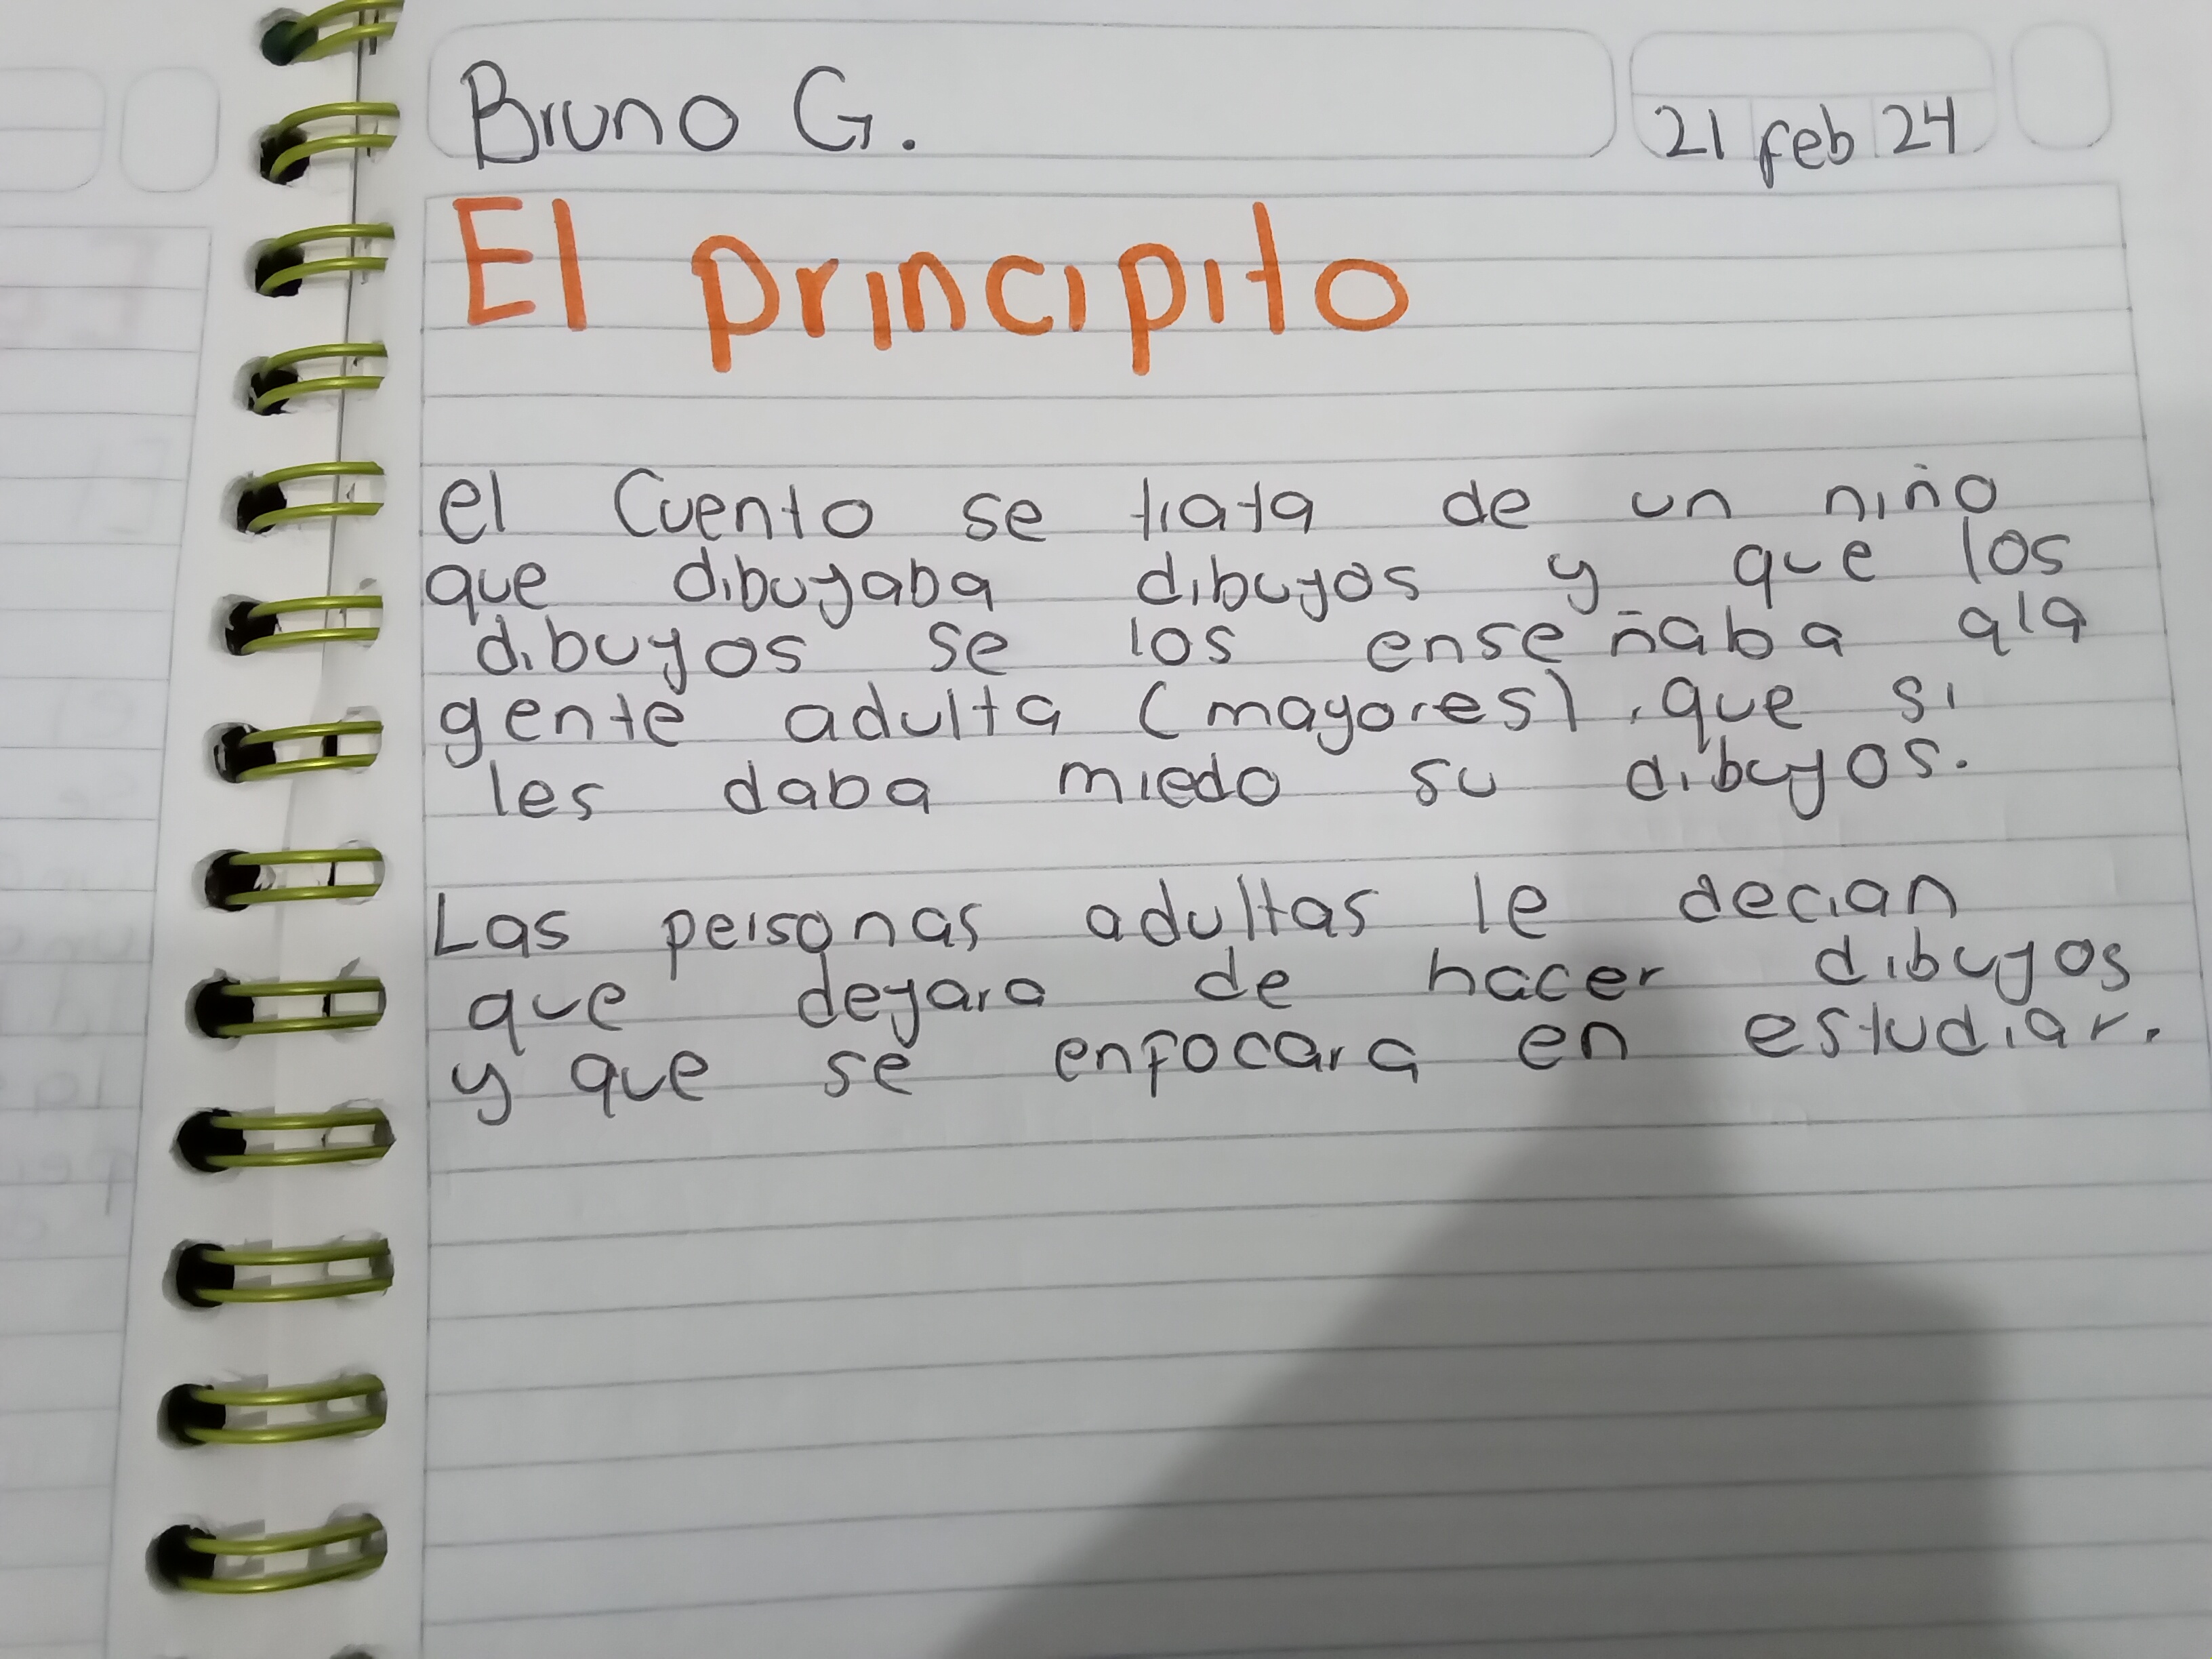 Bruno G.
21 feb 24
El principito
el Cuento se trata de un niño
que dibujaba dibujos y que los
dibujos se los enseñaba ala
gente adulta (mayores), que si
les daba miedo su dibujos.
Las personas adultas le decian
que dejara de hacer dibujos
y que se enfocara en estudiar.